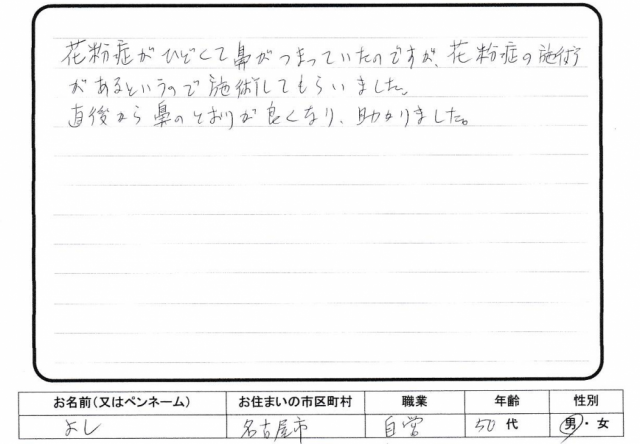 花粉症がひどくて鼻がつまっていたのですが、花粉症の施術
があるというので施術してもらいました。
直後から鼻のとおりが良くなり、助かりました。
お名前(又はペンネーム) お住まいの市区町村 職業 年齢 性別
よし 名古屋市 自営 50代 男・女